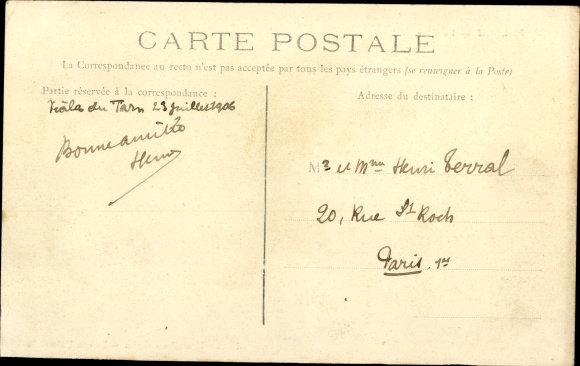 CARTE POSTALE
La Correspondance au recto n'est pas acceptée par tous les pays étrangers (se renseigner à la Poste)
Partie réservée à la correspondance :
Viala du Tarn 23 juillet 1906
Bonne amitié
Henri
Adresse du destinataire :
Mr et Mme Henri Terral
20, Rue St Roch
Paris. 1er